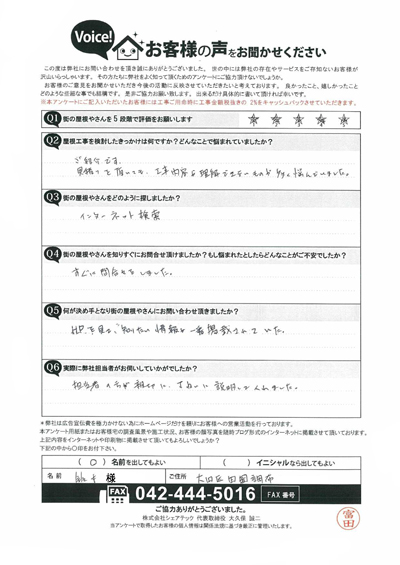 Voice!
お客様の声をお聞かせください
この度は弊社にお問い合わせを頂き誠にありがとうございました。世の中には弊社の存在やサービスをご存知ないお客様が
沢山いらっしゃいます。その方たちに弊社をよく知って頂くためのアンケートにご協力頂けないでしょうか。
お客様のご意見をお聞かせいただき今後の活動に反映させていただきたいと考えております。良かったこと、嬉しかったこと
どのような些細な事でも結構です。是非ご協力お願い致します。出来るだけ具体的に書いて頂ければ幸いです。
※本アンケートにご記入いただいたお客様には工事ご用命時に工事金額税抜きの 2%をキャッシュバックさせていただきます。
Q1 街の屋根やさんを5段階で評価をお願いします
Q2 屋根工事を検討したきっかけは何ですか？どんなことで悩まれていましたか？
Q3 街の屋根やさんをどのように探しましたか？
インターネット検索
Q4 街の屋根やさんを知りすぐにお問合せ頂けましたか？もし悩まれたとしたらどんなことがご不安でしたか？
すぐに問合せをしました。
Q5 何が決め手となり街の屋根やさんにお問い合わせ頂きましたか？
HPを見て、知りたい情報が一番掲載されていた。
Q6 実際に弊社担当者がお伺いしていかがでしたか？
担当者の方が親切に、ていねいに説明してくれました。
＊弊社は広告宣伝費を極力かけない為にホームページだけを頼りにお客様への営業活動を行っております。
本アンケート用紙またはお客様宅の調査風景や施工状況、お客様の顔写真を随時ブログ形式のインターネットに掲載させて頂いております。
上記内容をインターネットや印刷物に掲載させて頂いてもよろしいでしょうか？
下記の中から〇印をお付け下さい。
（〇）名前を出してもよい （ ）イニシャルなら出してもよい
名前 様 ご住所 大田区田園調布
FAX 042-444-5016 FAX 番号
ご協力ありがとうございました。
株式会社シェアテック 代表取締役 大久保 誠二
当アンケートで取得したお客様の個人情報は関係法規に基づき厳正に管理いたします。
富田